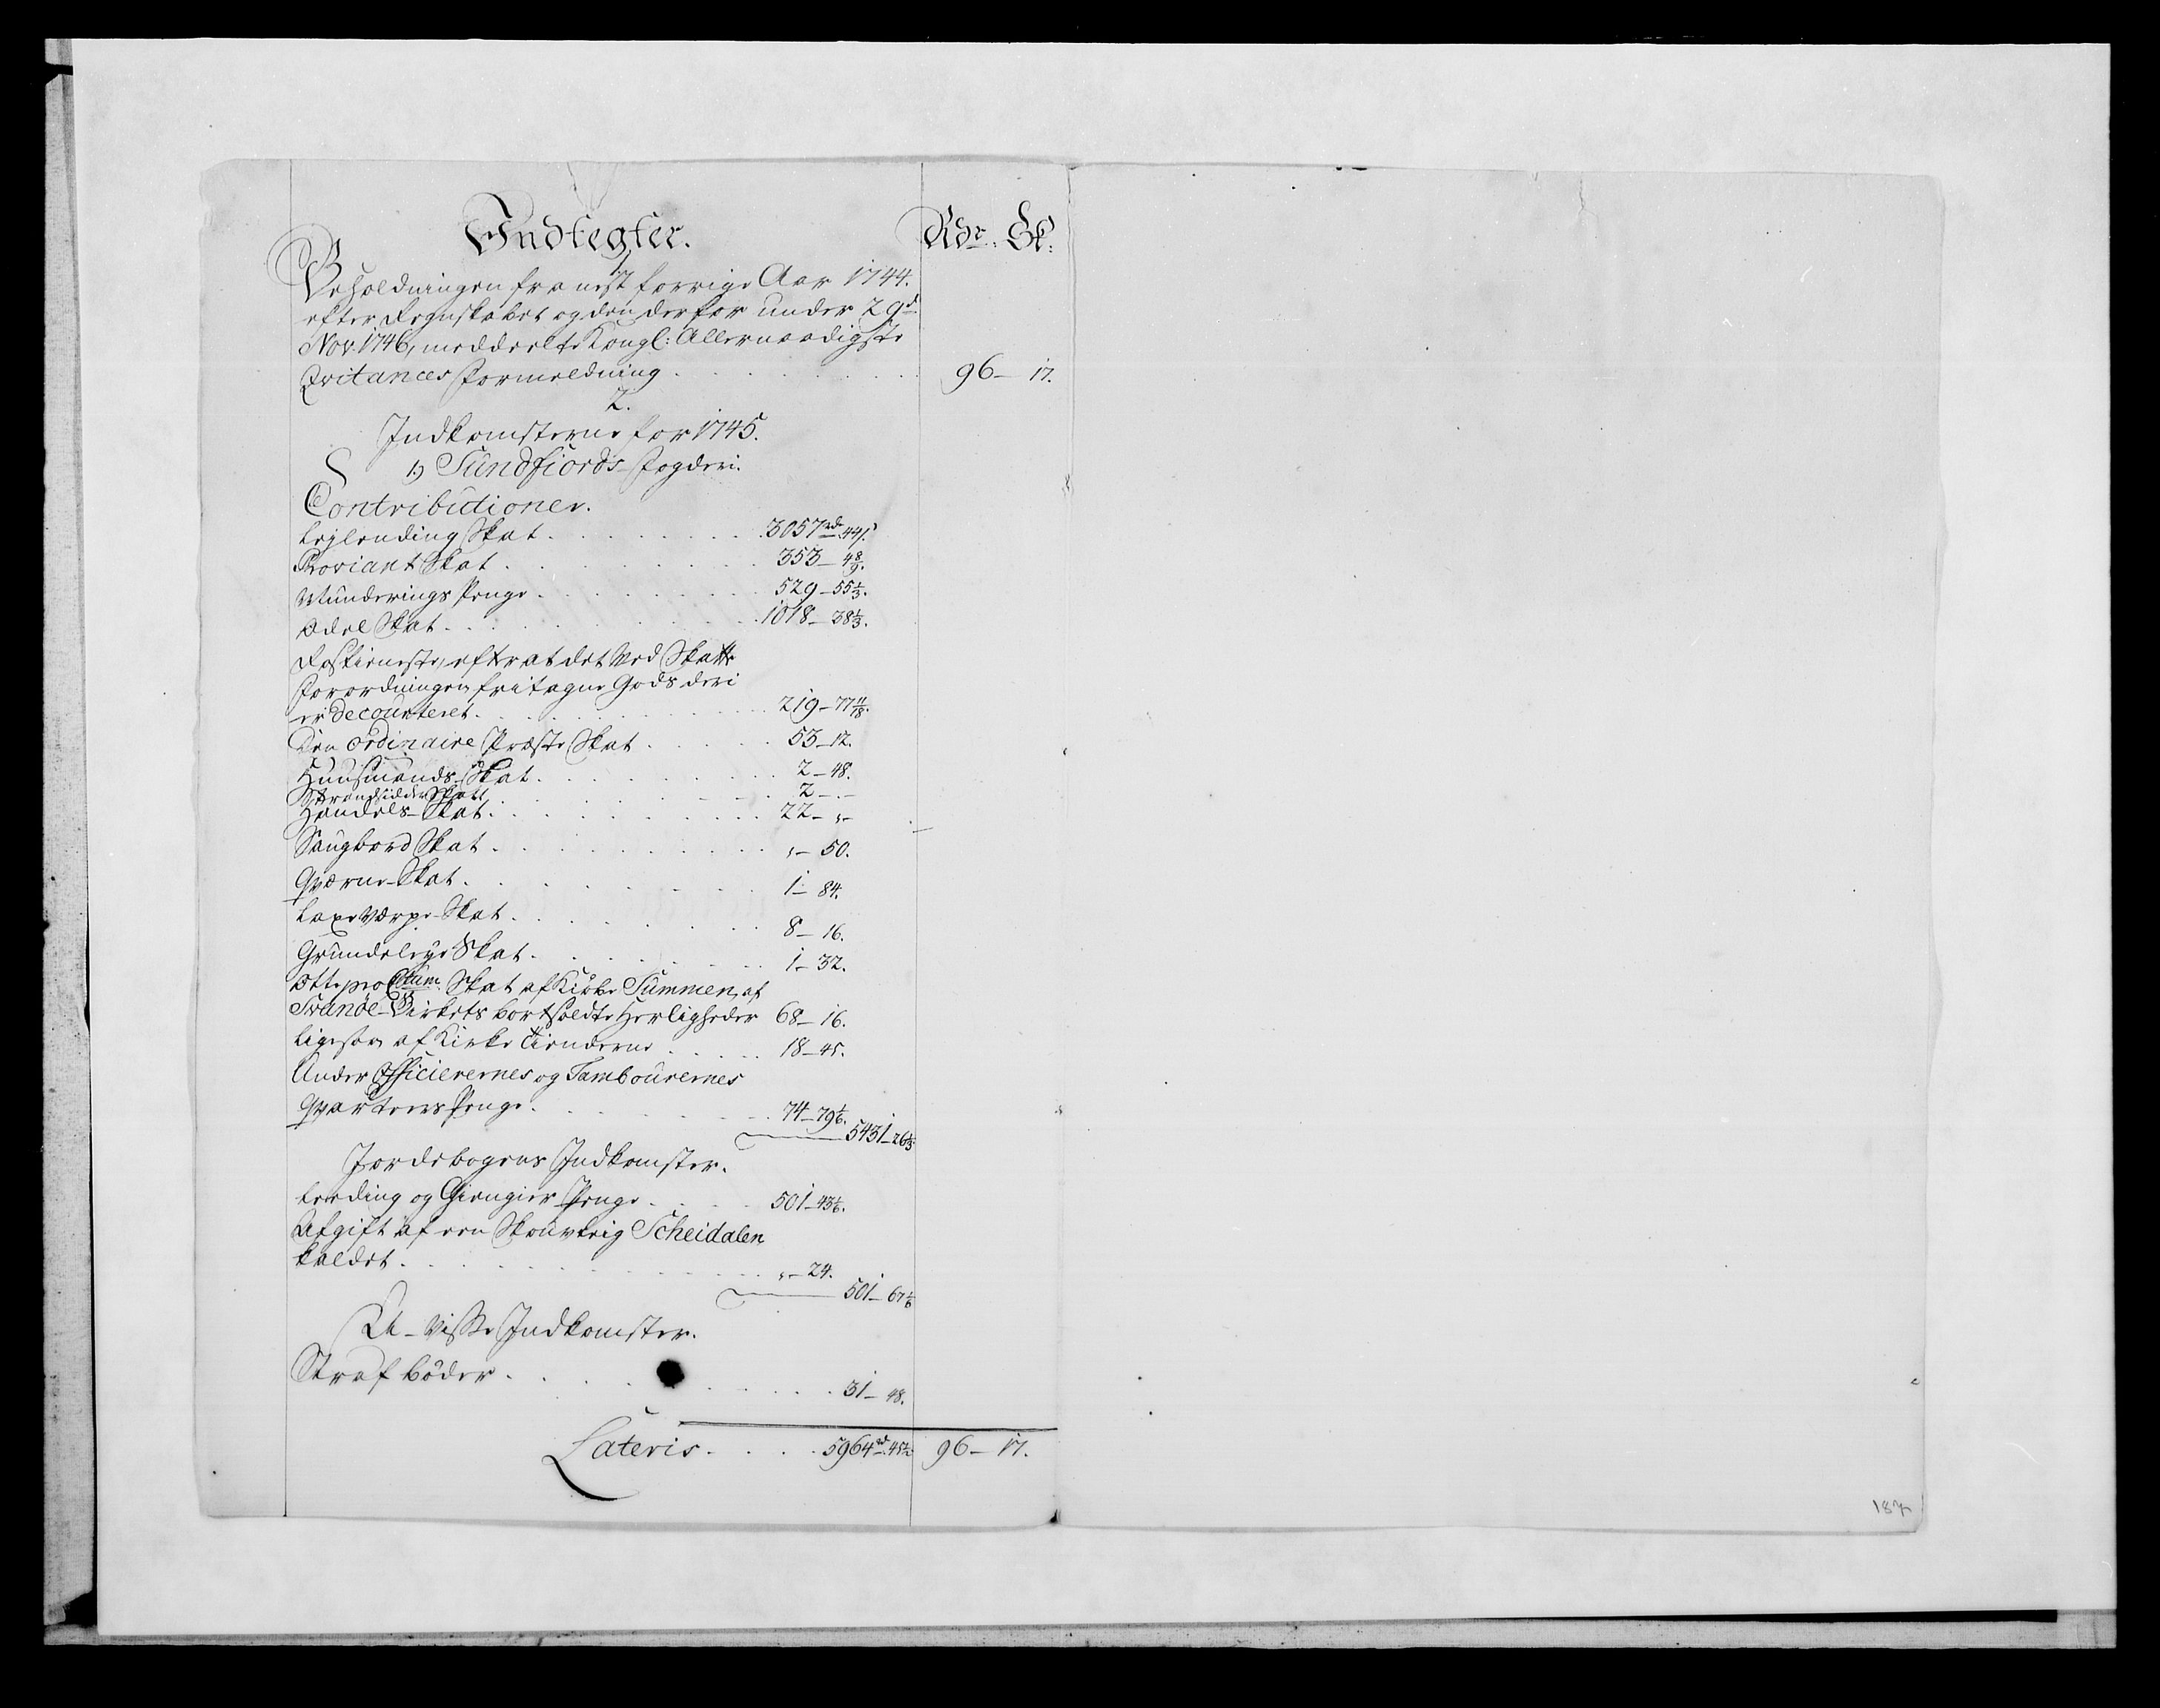 Indtegter. Rdr. Sk:
1.
Beholdningen fra nest forrige Aar 1744.
efter Regnskabet og den derfor under 29d
Nov. 1746, meddeelte Kongl: Allernaadigste
Qvitances Formeldning . . . 96 – 17.
2.
Indkomsterne for 1745.
1) Sundfiords Fogderi.
Contributioner.
Lejlending Skat . . . 3057rd. 44s.
Proviant Skat . . . 353 – 4 8/9.
Munderings Penge . . . 529 – 55 1/3.
Odel Skat . . . 1018 – 38 1/3.
Rostieneste, efter at det ved Skatte
Forordningen fritagne Gods deri
er decourteret . . . 219 – 77 11/18.
Den ordinaire Præste Skat . . . 53 – 12.
Huusmands-Skat . . . 2 – 48.
Strandsidder Skatt . . . 2 – . –
Handels-Skat . . . 22 – „ –
Saugbord Skat . . . „ – 50.
Qværne-Skat . . . 1 – 84.
Laxe Værpe-Skat . . . 8 – 16.
Grundeleye Skat . . . 1 – 32.
Otte pro Centum Skat af Kiøbe Summen, af
Svanöe-Birkets bortsoldte Herligheder 68 – 16.
Ligesaa af Kirke Tienderne . . . 18 – 45.
Under Officierernes og Tambourernes
Qvarteers Penge . . . 74 – 79 1/6.
5431 – 26 1/3.
Jordebogens Indkomster.
Leeding og Giengier Penge . . . 501 – 43 1/6.
Afgift af een Skouvteig Scheidalen
kaldet . . . „ – 24.
501 – 67 1/6
U-visse Indkomster.
Straf bøder . . . 31 – 48.
Lateris . . . 5964rd. 45 1/2. 96 – 17.